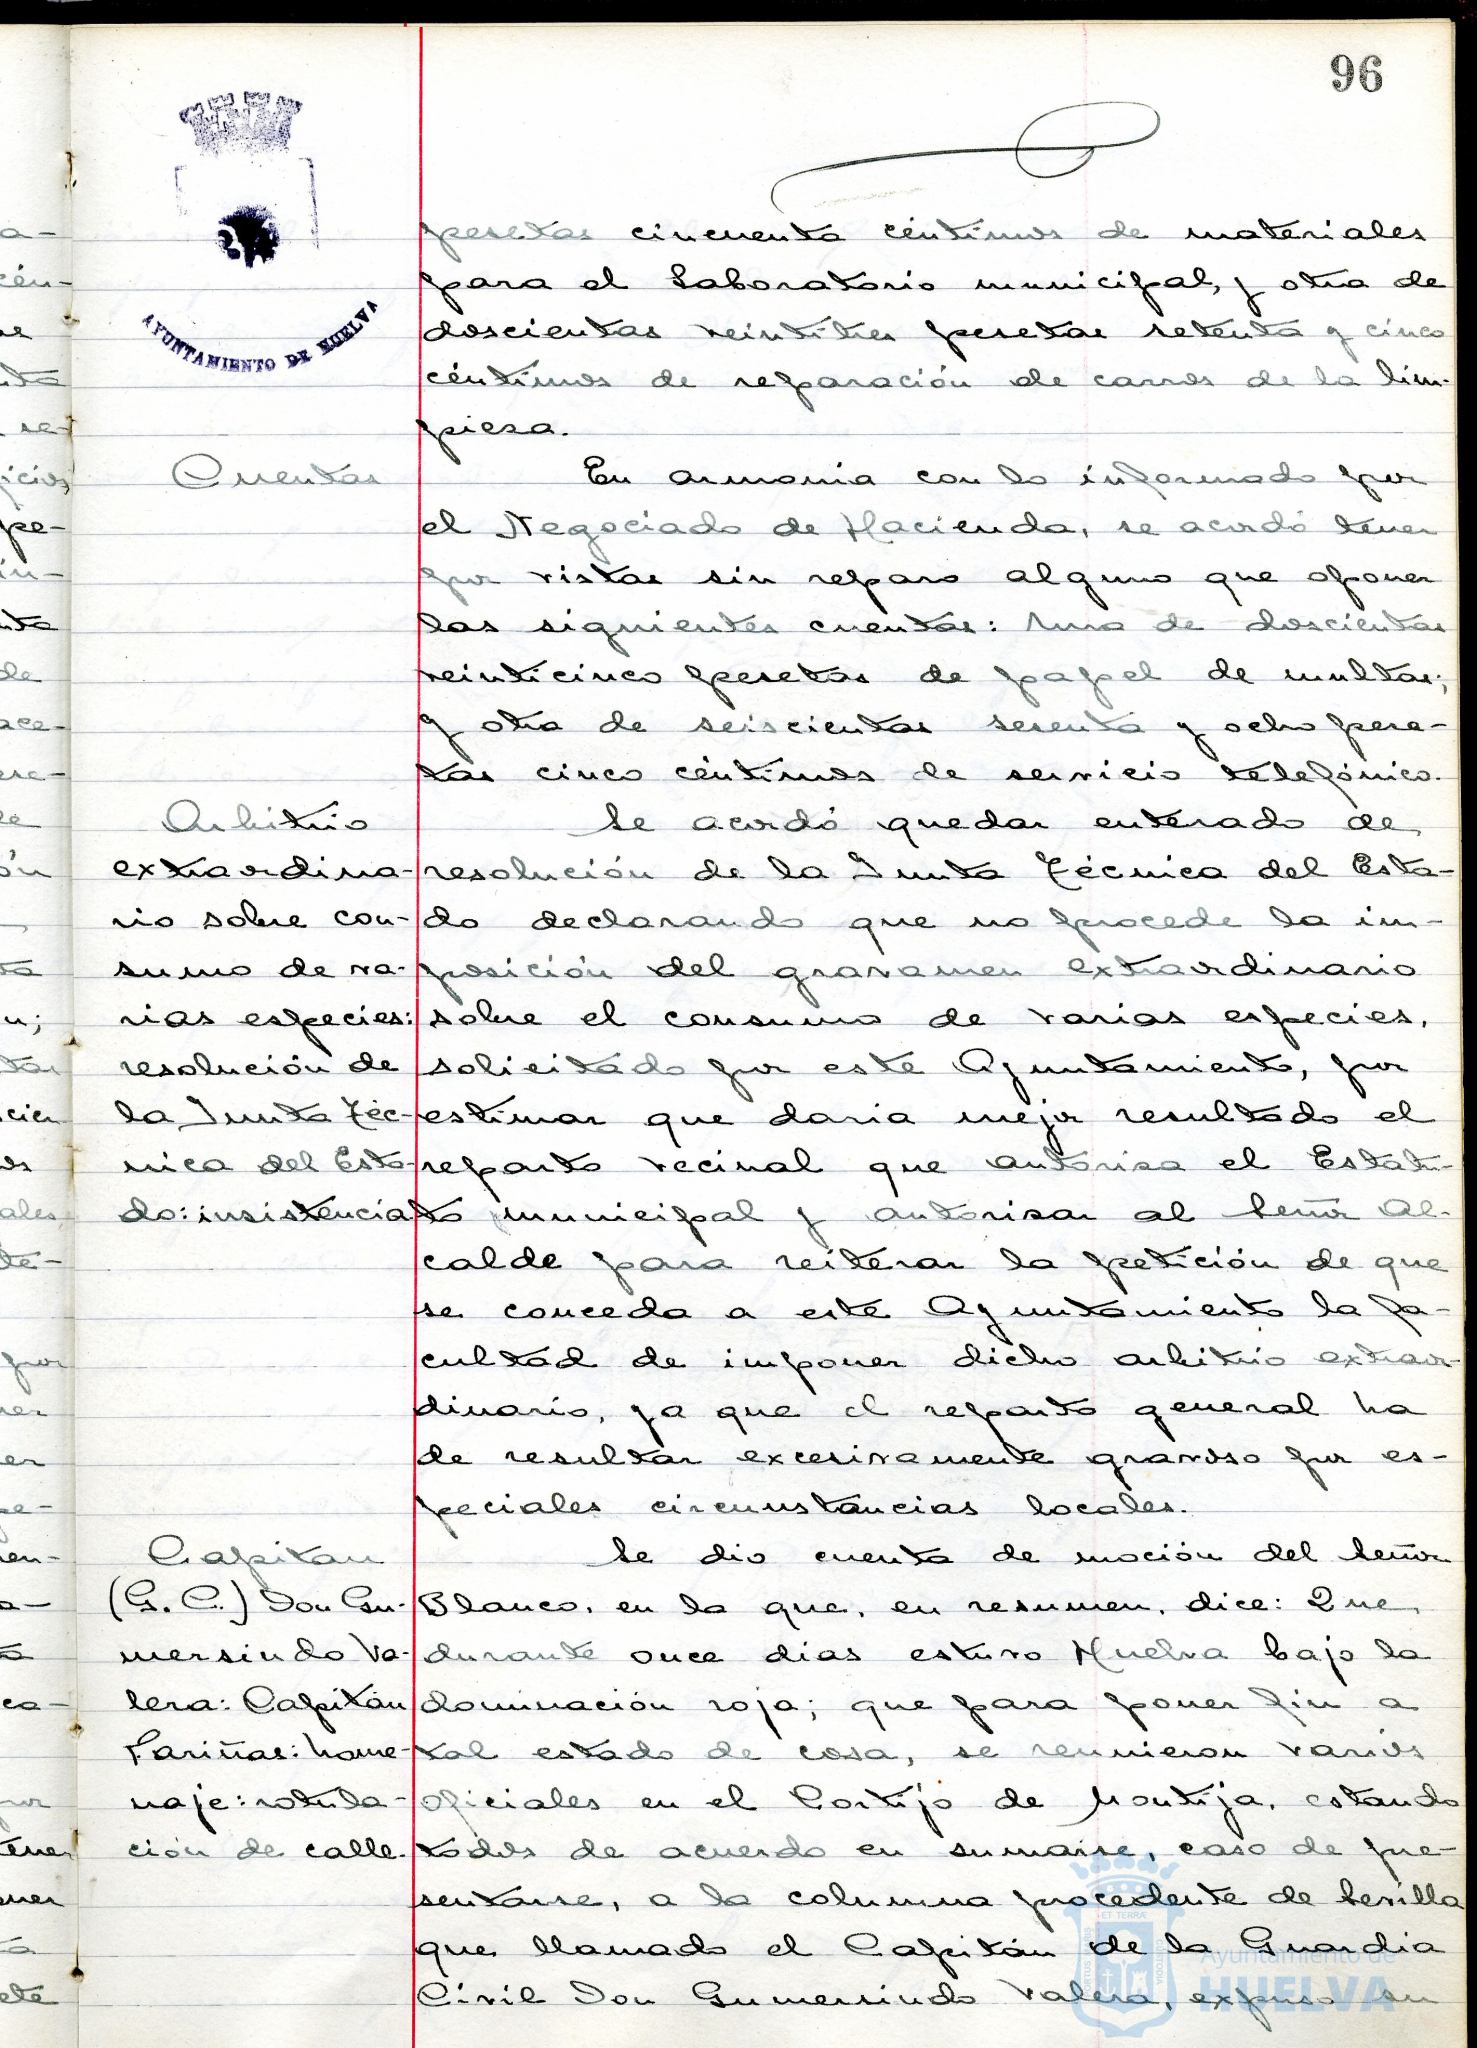 96
AYUNTAMIENTO DE HUELVA
pesetas cincuenta céntimos de materiales
para el Laboratorio municipal, y otra de
doscientas veintitres pesetas setenta y cinco
céntimos de reparación de carros de la lim-
pieza.
Cuentas
En armonia con lo informado por
el Negociado de Hacienda, se acordó tener
por vistas sin reparo alguno que oponer
las siguientes cuentas: Una de doscientas
veinticinco pesetas de papel de multas;
y otra de seiscientas sesenta y ocho pese-
tas cinco céntimos de servicio telefónico.
Arbitrio
extraordina-
rio sobre con-
sumo de va-
rias especies:
resolución de
la Junta Téc-
nica del Esta-
do: insistencia
Se acordó quedar enterado de
resolución de la Junta Técnica del Esta-
do declarando que no procede la im-
posición del gravamen extraordinario
sobre el consumo de varias especies,
solicitado por este Ayuntamiento, por
estimar que daria mejor resultado el
reparto vecinal que autoriza el Estatu-
to municipal y autorizar al Señor Al-
calde para reiterar la petición de que
se conceda a este Ayuntamiento la fa-
cultad de imponer dicho arbitrio extraor-
dinario, ya que el reparto general ha
de resultar excesivamente gravoso por es-
peciales circunstancias locales.
Capitan
(G. C.) Don Gu-
mersindo Va-
lera: Capitán
Fariñas: home-
naje: rotula-
ción de calle.
Se dio cuenta de moción del Señor
Blanco, en la que, en resumen, dice: Que
durante once dias estuvo Huelva bajo la
dominación roja; que para poner fin a
tal estado de cosa, se reunieron varios
oficiales en el Cortijo de Montija, estando
todos de acuerdo en sumarse, caso de pre-
sentarse, a la columna procedente de Sevilla
que llamado el Capitán de la Guardia
Civil Don Gumersindo Valera, expuso su
Ayuntamiento de
HUELVA